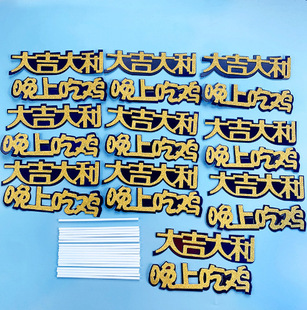 大吉大利
晚上吃鸡
大吉大利
晚上吃鸡
大吉大利
晚上吃鸡
大吉大利
晚上吃鸡
大吉大利
晚上吃鸡
大吉大利
晚上吃鸡
大吉大利
晚上吃鸡
大吉大利
晚上吃鸡
大吉大利
晚上吃鸡
大吉大利
晚上吃鸡